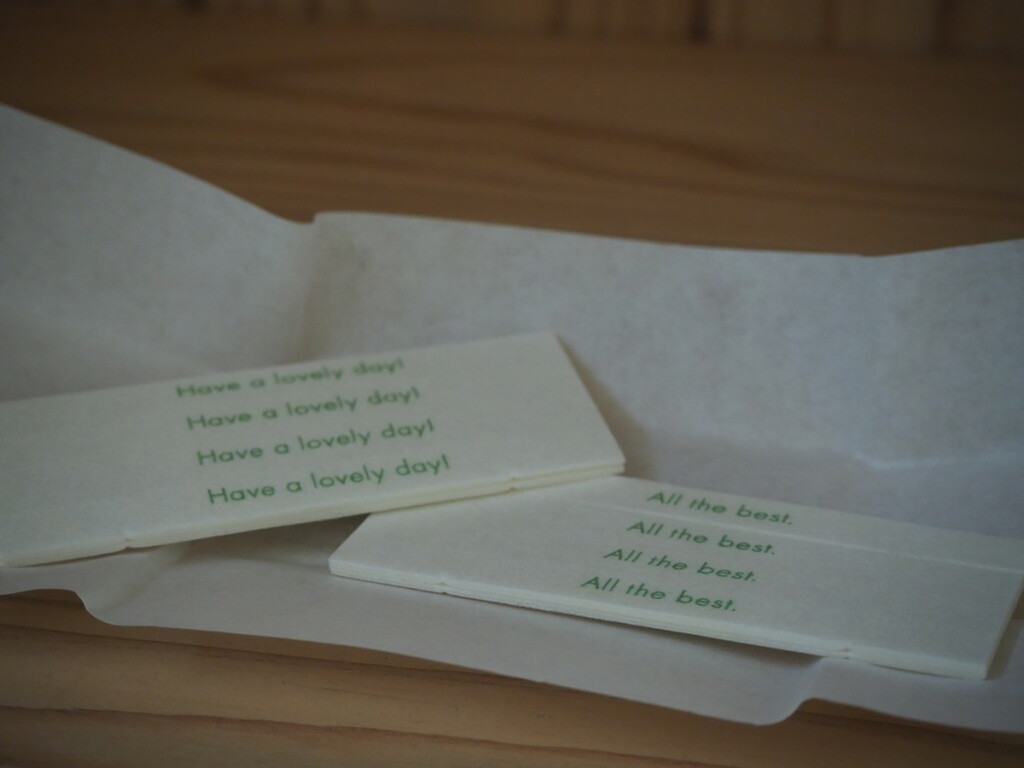 Have a lovely day!
Have a lovely day!
Have a lovely day!
Have a lovely day!
All the best.
All the best.
All the best.
All the best.